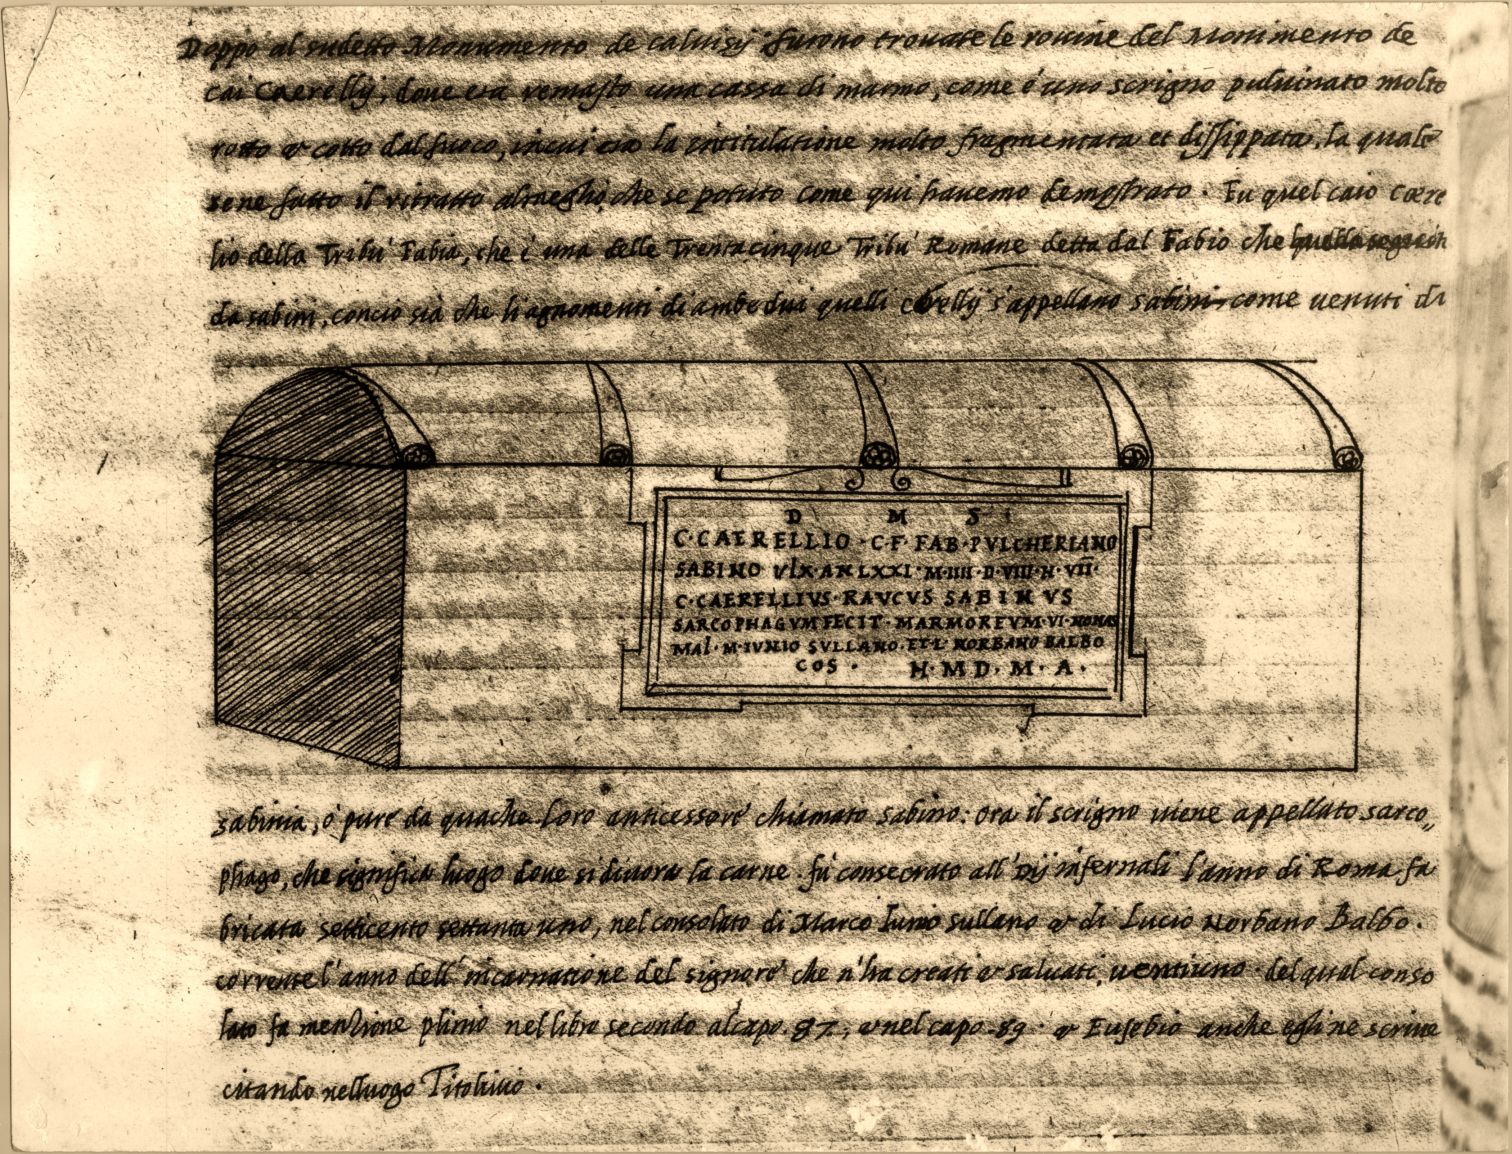 Doppo al sudetto Monumento de calvisij furono trovate le rovine del Monimento de
cai Caerellij, dove era remasto una cassa di marmo, come è uno scrigno pulvinato molto
rotto & cotto dal fuoco, in cui era la intitulatione molto fragmentata et dissippata, la quale
sene fatto il ritratto almeglio, che se potuto come qui havemo demostrato. Fu quel caio Cære
lio della Tribù Fabia, che è una delle Trentacinque Tribù Romane detta dal Fabio che
da sabini, concio sia che li agnomenti di ambedui quelli s'appellano sabini come venuti da
D M S
C·CAERELLIO·C·F·FAB·PVLCHERIANO
SABINO VIX·AN LXXI·M·IIII·D·VIII·H·VII·
C·CAERELLIVS·RAVCVS SABINVS
SARCOPHAGVM FECIT·MARMOREVM·VI·NONAS
MAI·M·IVNIO SVLLANO·ET·L·NORBANO BALBO
COS· H·M·D·M·A·
sabinia, ò pure da quache loro anticessore chiamato sabino: ora il scrigno viene appellato sarco,,
phago, che significa luogo dove si divora la carne. fù consecrato all'Dij infernali l'anno di Roma fa
bricata setticento settanta uno, nel consolato di Marco Iunio sullano & di Lucio Norbano Balbo.
corrente l'anno dell'incarnatione del signore che n'ha creati & salvati, ventiuno. del qual conso
lato fa mentione plinio nel libro secondo al capo. 87, & nel capo. 89. & Eusebio anche egli ne scrive
citando nelluogo Titolivio.